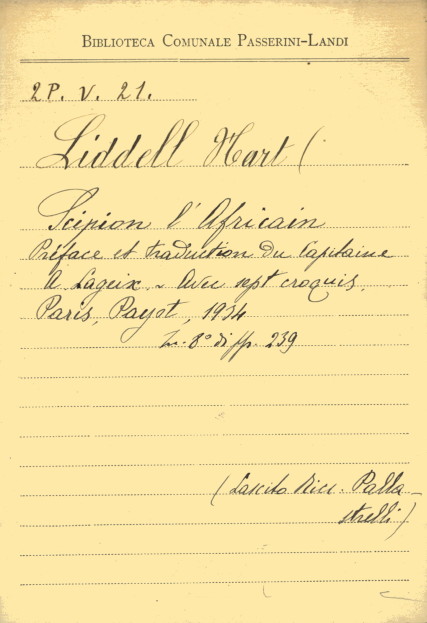 BIBLIOTECA COMUNALE PASSERINI-LANDI
2P. V. 21.
Liddell Hart (
Scipion l'Africain
Préface et traduction du Capitaine
A. Lageix - Avec sept croquis.
Paris, Payot, 1934
8° di pp. 239
(Lascito Ricc. Palla-
strelli)